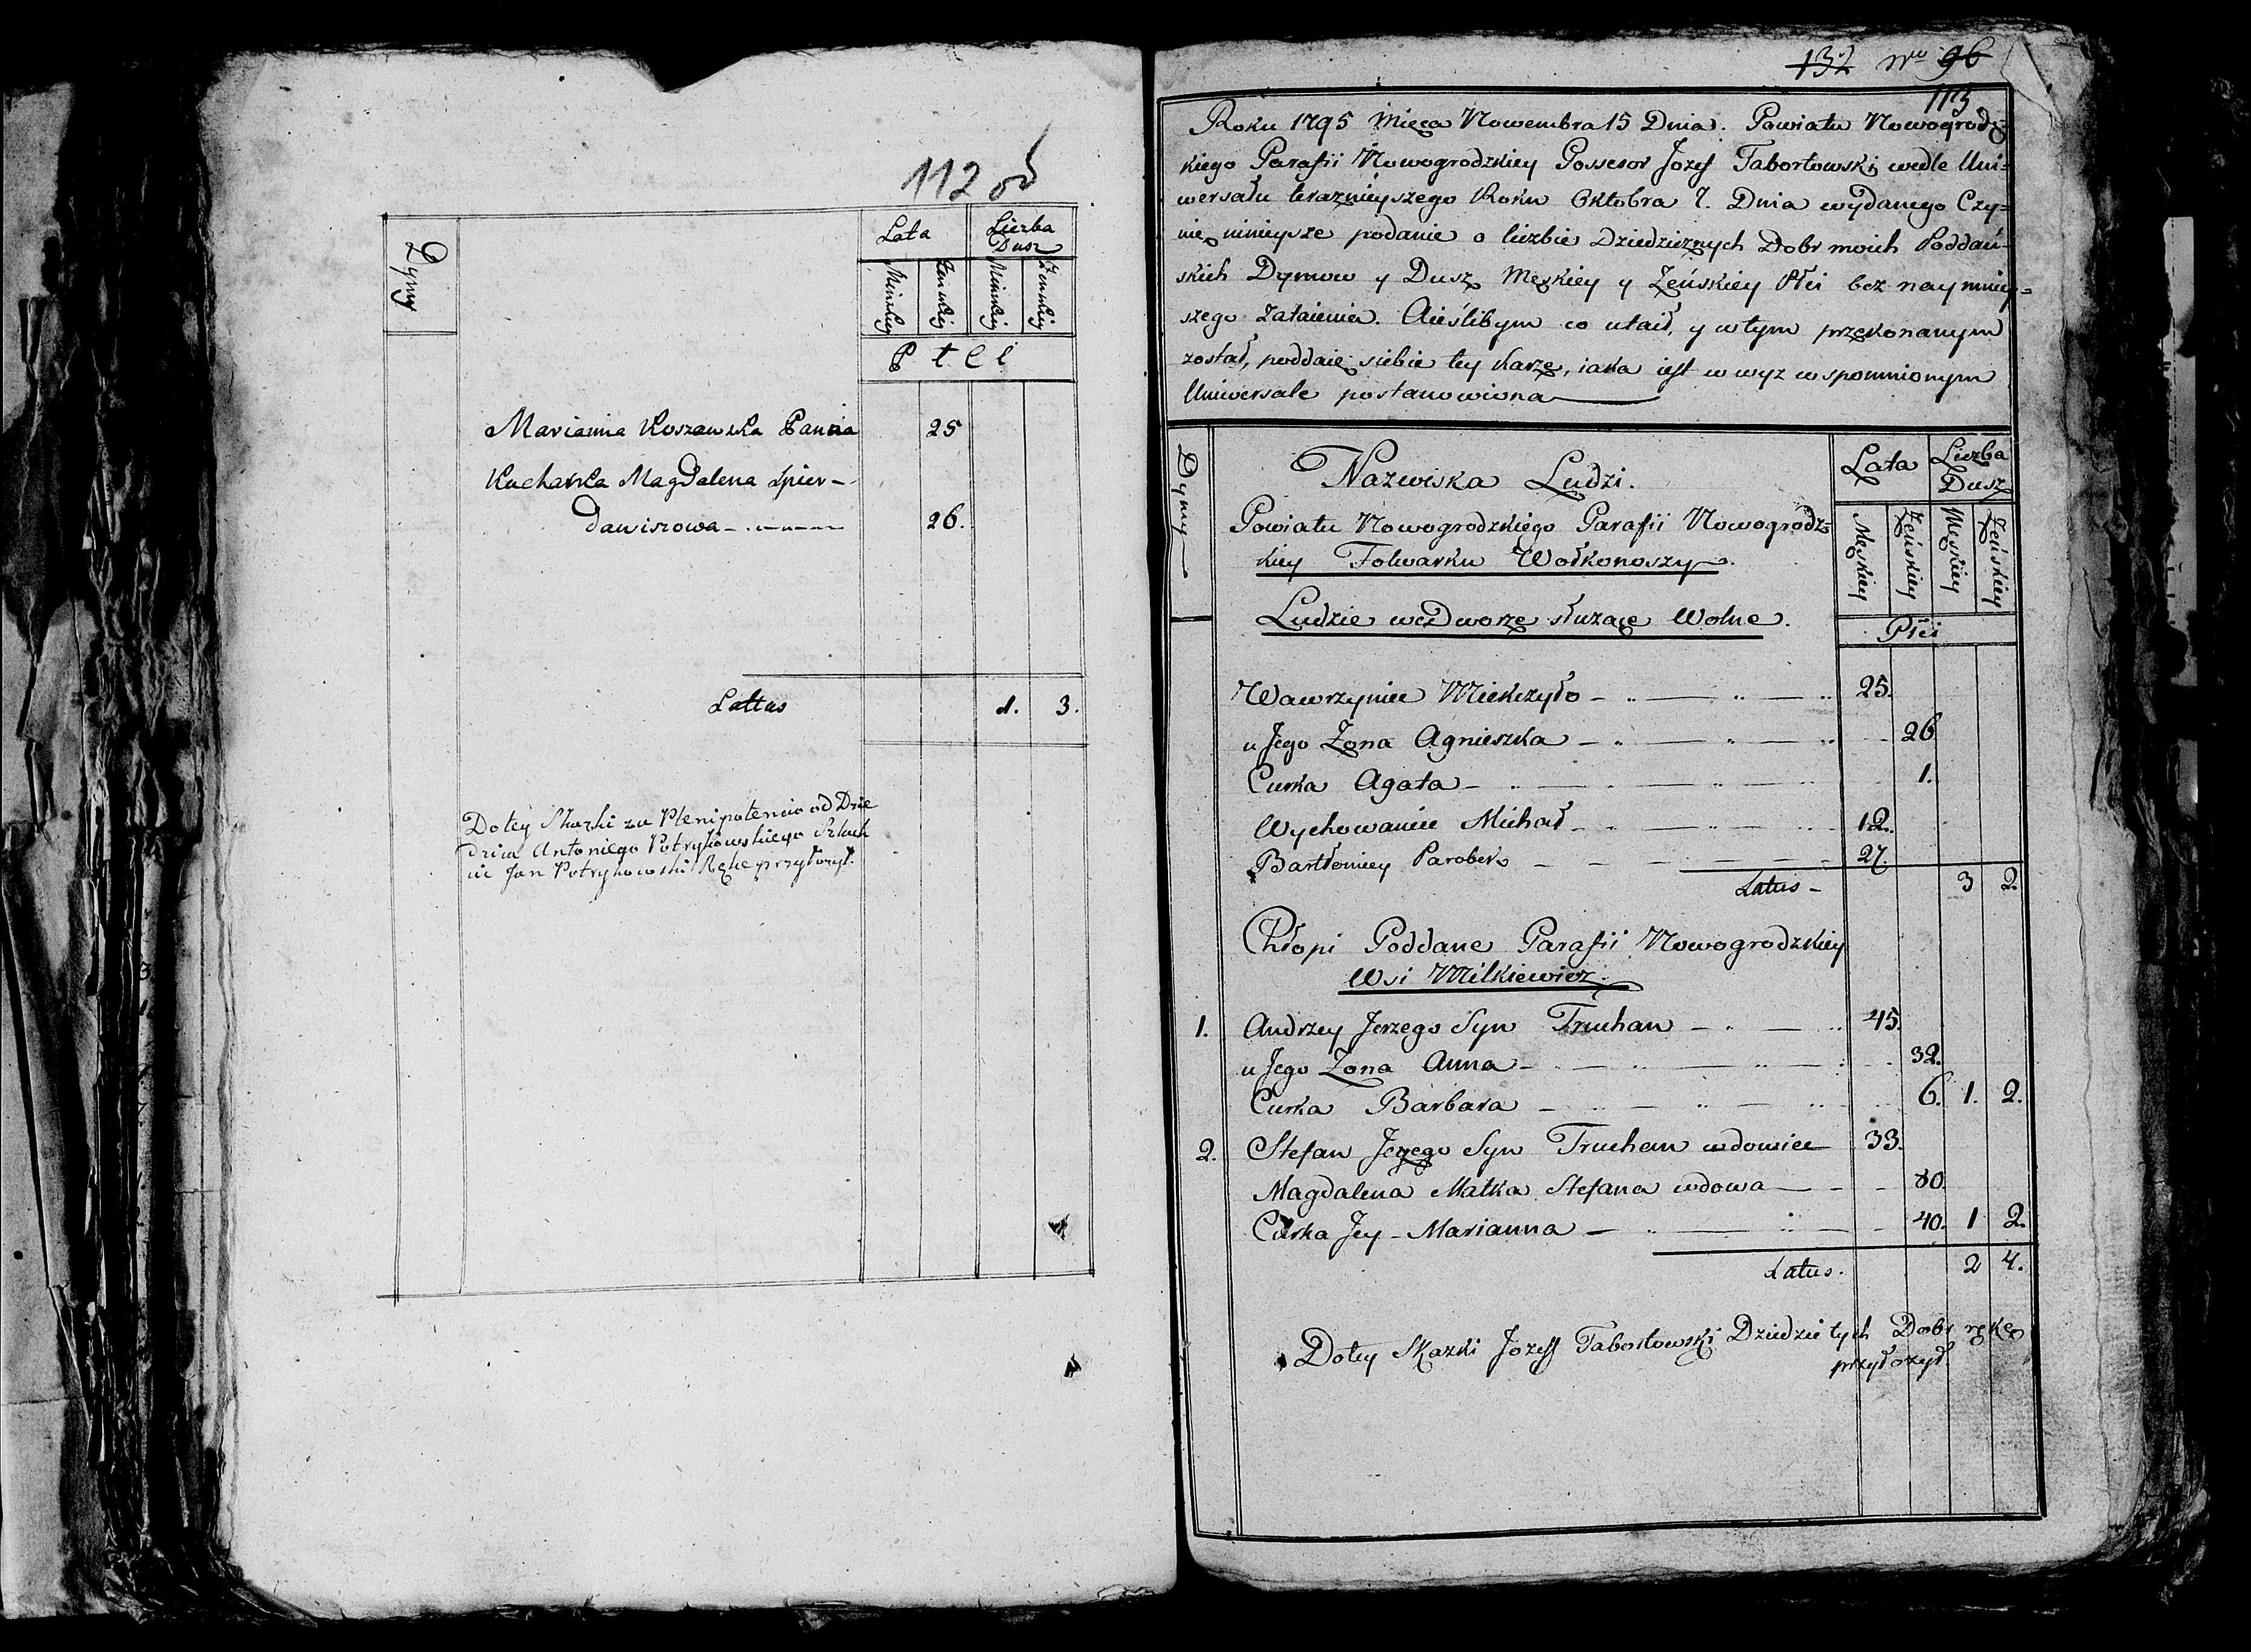 112 об
Dymy
Lata
Liczba
Dusz
Męskiey
Żenskiey
Męskiey
Żenskiey
P ł C i
Marianna Koszawska Panna 25
Kucharka Magdalena Spier-
dawiszowa 26.
Lattus 1. 3.
Do tey Skazki za Plenipotencio od Dzie
dzica Antoniego Potrykowskiego Szlach
cic Jan Potrykowski Rękę przyłożył.
132 Nro 96
113
Roku 1795 Mięca Nowembra 15 Dnia. Powiatu Nowogrodz=
kiego Parafii Nowogrodzkiey Possesor Jozef Tabortowski wedle Uni=
wersału terazniejszego Roku Oktobra 7. Dnia wydanego Czy=
nię ninieysze podanie o liczbie Dziedzicznych Dobr moich Poddań=
skich Dymow y Dusz Męskiey y Żeńskiey Płci bez naymniey=
szego zataienia. Aieślibym co utaił, y w tym przekonanym
został, poddaię siebie tey karze, iaka iest w wyz wspomnionym
Uniwersale postanowiona
Dymy
Nazwiska Ludzi.
Lata
Liczba
Dusz
Powiatu Nowogrodzkiego Parafii Nowogrodz=
kiey Folwarku Wołkonoszy.
Męskiey
Żeńskiey
Męskiey
Żeńskiey
Ludzie we Dworze służące Wolne.
Płci
Wawrzyniec Miekczyło 25.
u Jego Żona Agnieszka 26
Curka Agata 1.
Wychowaniec Michał 12.
Bartłomiey Parobek 27.
Latus 3 2.
Chłopi Poddane Parafii Nowogrodzkiey
Wsi Milkiewicz.
1. Andrzey Jerzego Syn Truchan 45.
u Jego Żona Anna 32.
Curka Barbara 6. 1. 2.
2. Stefan Jerzego Syn Truchan wdowiec 33.
Magdalena Matka Stefana wdowa 80.
Curka Jey Marianna 40. 1 2.
Latus. 2 4.
Do tey Skazki Jozeff Tabortowski Dziedzic tych Dobr rękę
przyłożył.